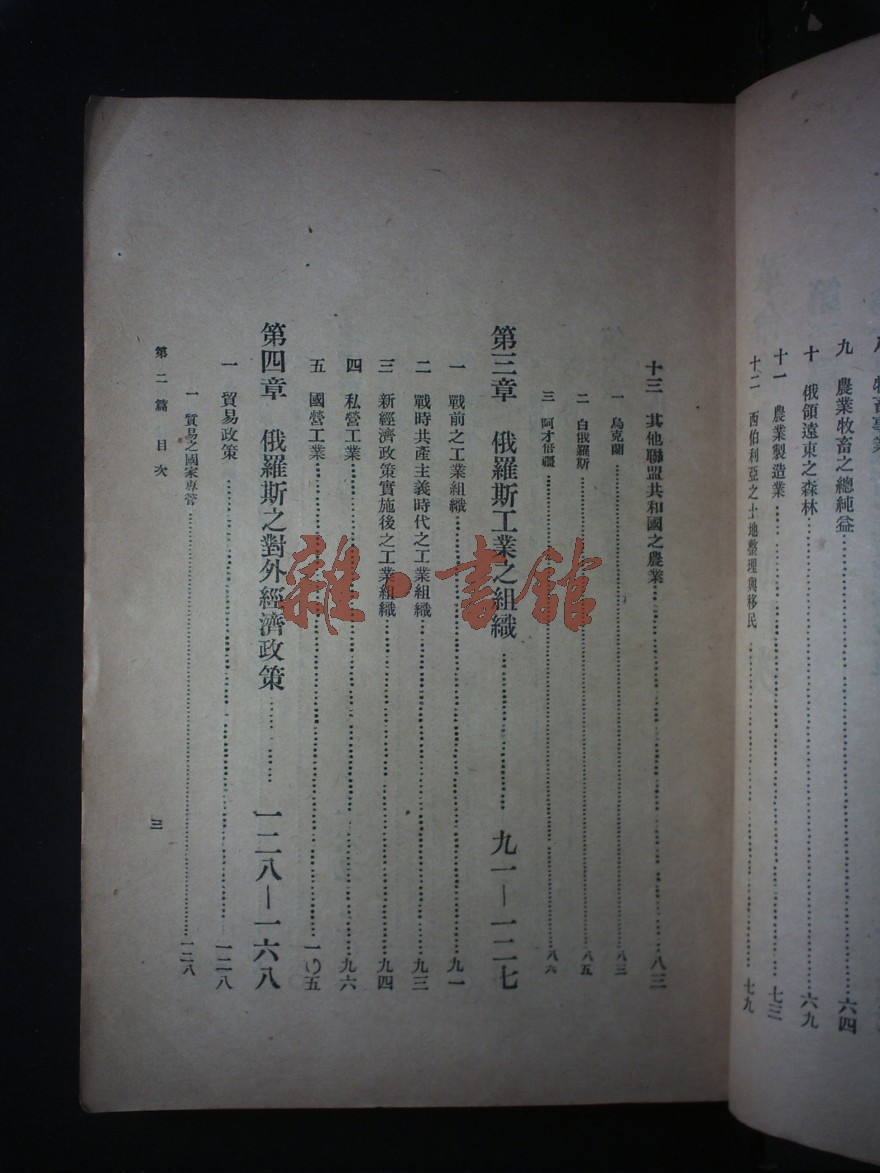 九 農業牧畜之總純益……六四
十 俄領遠東之森林……六九
十一 農業製造業……七三
十二 西伯利亞之土地整理與移民……七九
十三 其他聯盟共和國之農業……八三
一 烏克蘭……八三
二 白俄羅斯……八五
三 阿才倍疆……八六
第三章 俄羅斯工業之組織……九一—一二七
一 戰前之工業組織……九一
二 戰時共產主義時代之工業組織……九三
三 新經濟政策實施後之工業組織……九四
四 私營工業……九六
五 國營工業……一〇五
第四章 俄羅斯之對外經濟政策……一二八—一六八
一 貿易政策……一二八
一 貿易之國家專營……一二八
第二篇 目次
三
雜·書館